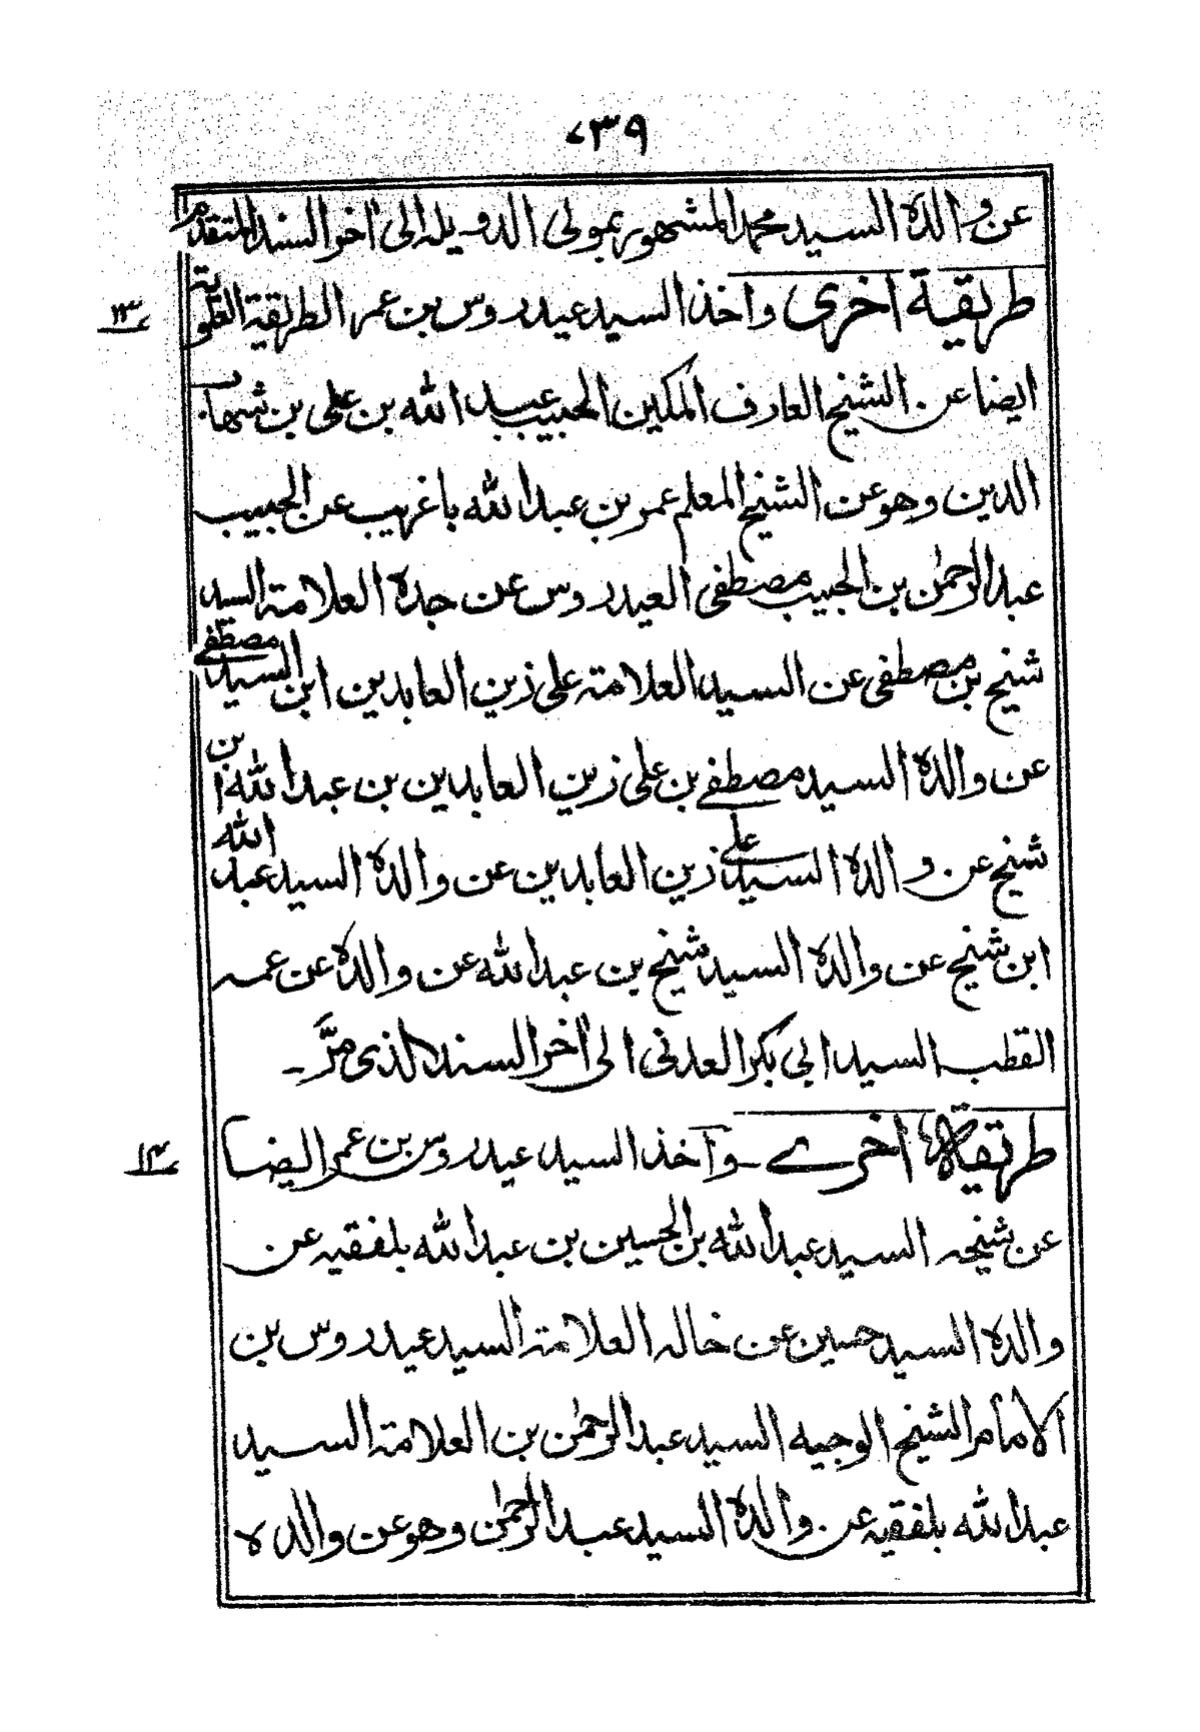 ٧٣٩
عن والده السيد محمد المشهور بمولى الدويله الى اخر السند المتقدم
١٣
طريقة اخرى واخذ السيد عيدروس بن عمر الطريقة العلوية
ايضا عن الشيخ العارف المكين الحبيب عبد الله بن علي بن شهاب
الدين وهو عن الشيخ المعلم عمر بن عبد الله باغريب عن الحبيب
عبد الرحمن بن الحبيب مصطفى العيدروس عن جده العلامة السيد
شيخ بن مصطفى عن السيد العلامة علي زين العابدين ابن السيد مصطفى
عن والده السيد مصطفى بن علي زين العابدين بن عبد الله بن
شيخ عن والده السيد علي زين العابدين عن والده السيد عبد الله
ابن شيخ عن والده السيد شيخ بن عبد الله عن والده عن عمه
القطب السيد ابي بكر العدني الى اخر السند الذي مرّ ـ
١٤
طريقة اخرى ـ واخذ السيد عيدروس بن عمر ايضا
عن شيخه السيد عبد الله بن الحسين بن عبد الله بلفقيه عن
والده السيد حسين عن خاله العلامة السيد عيدروس بن
الامام الشيخ الوجيه السيد عبد الرحمن بن العلامة السيد
عبد الله بلفقيه عن والده السيد عبد الرحمن وهو عن والده